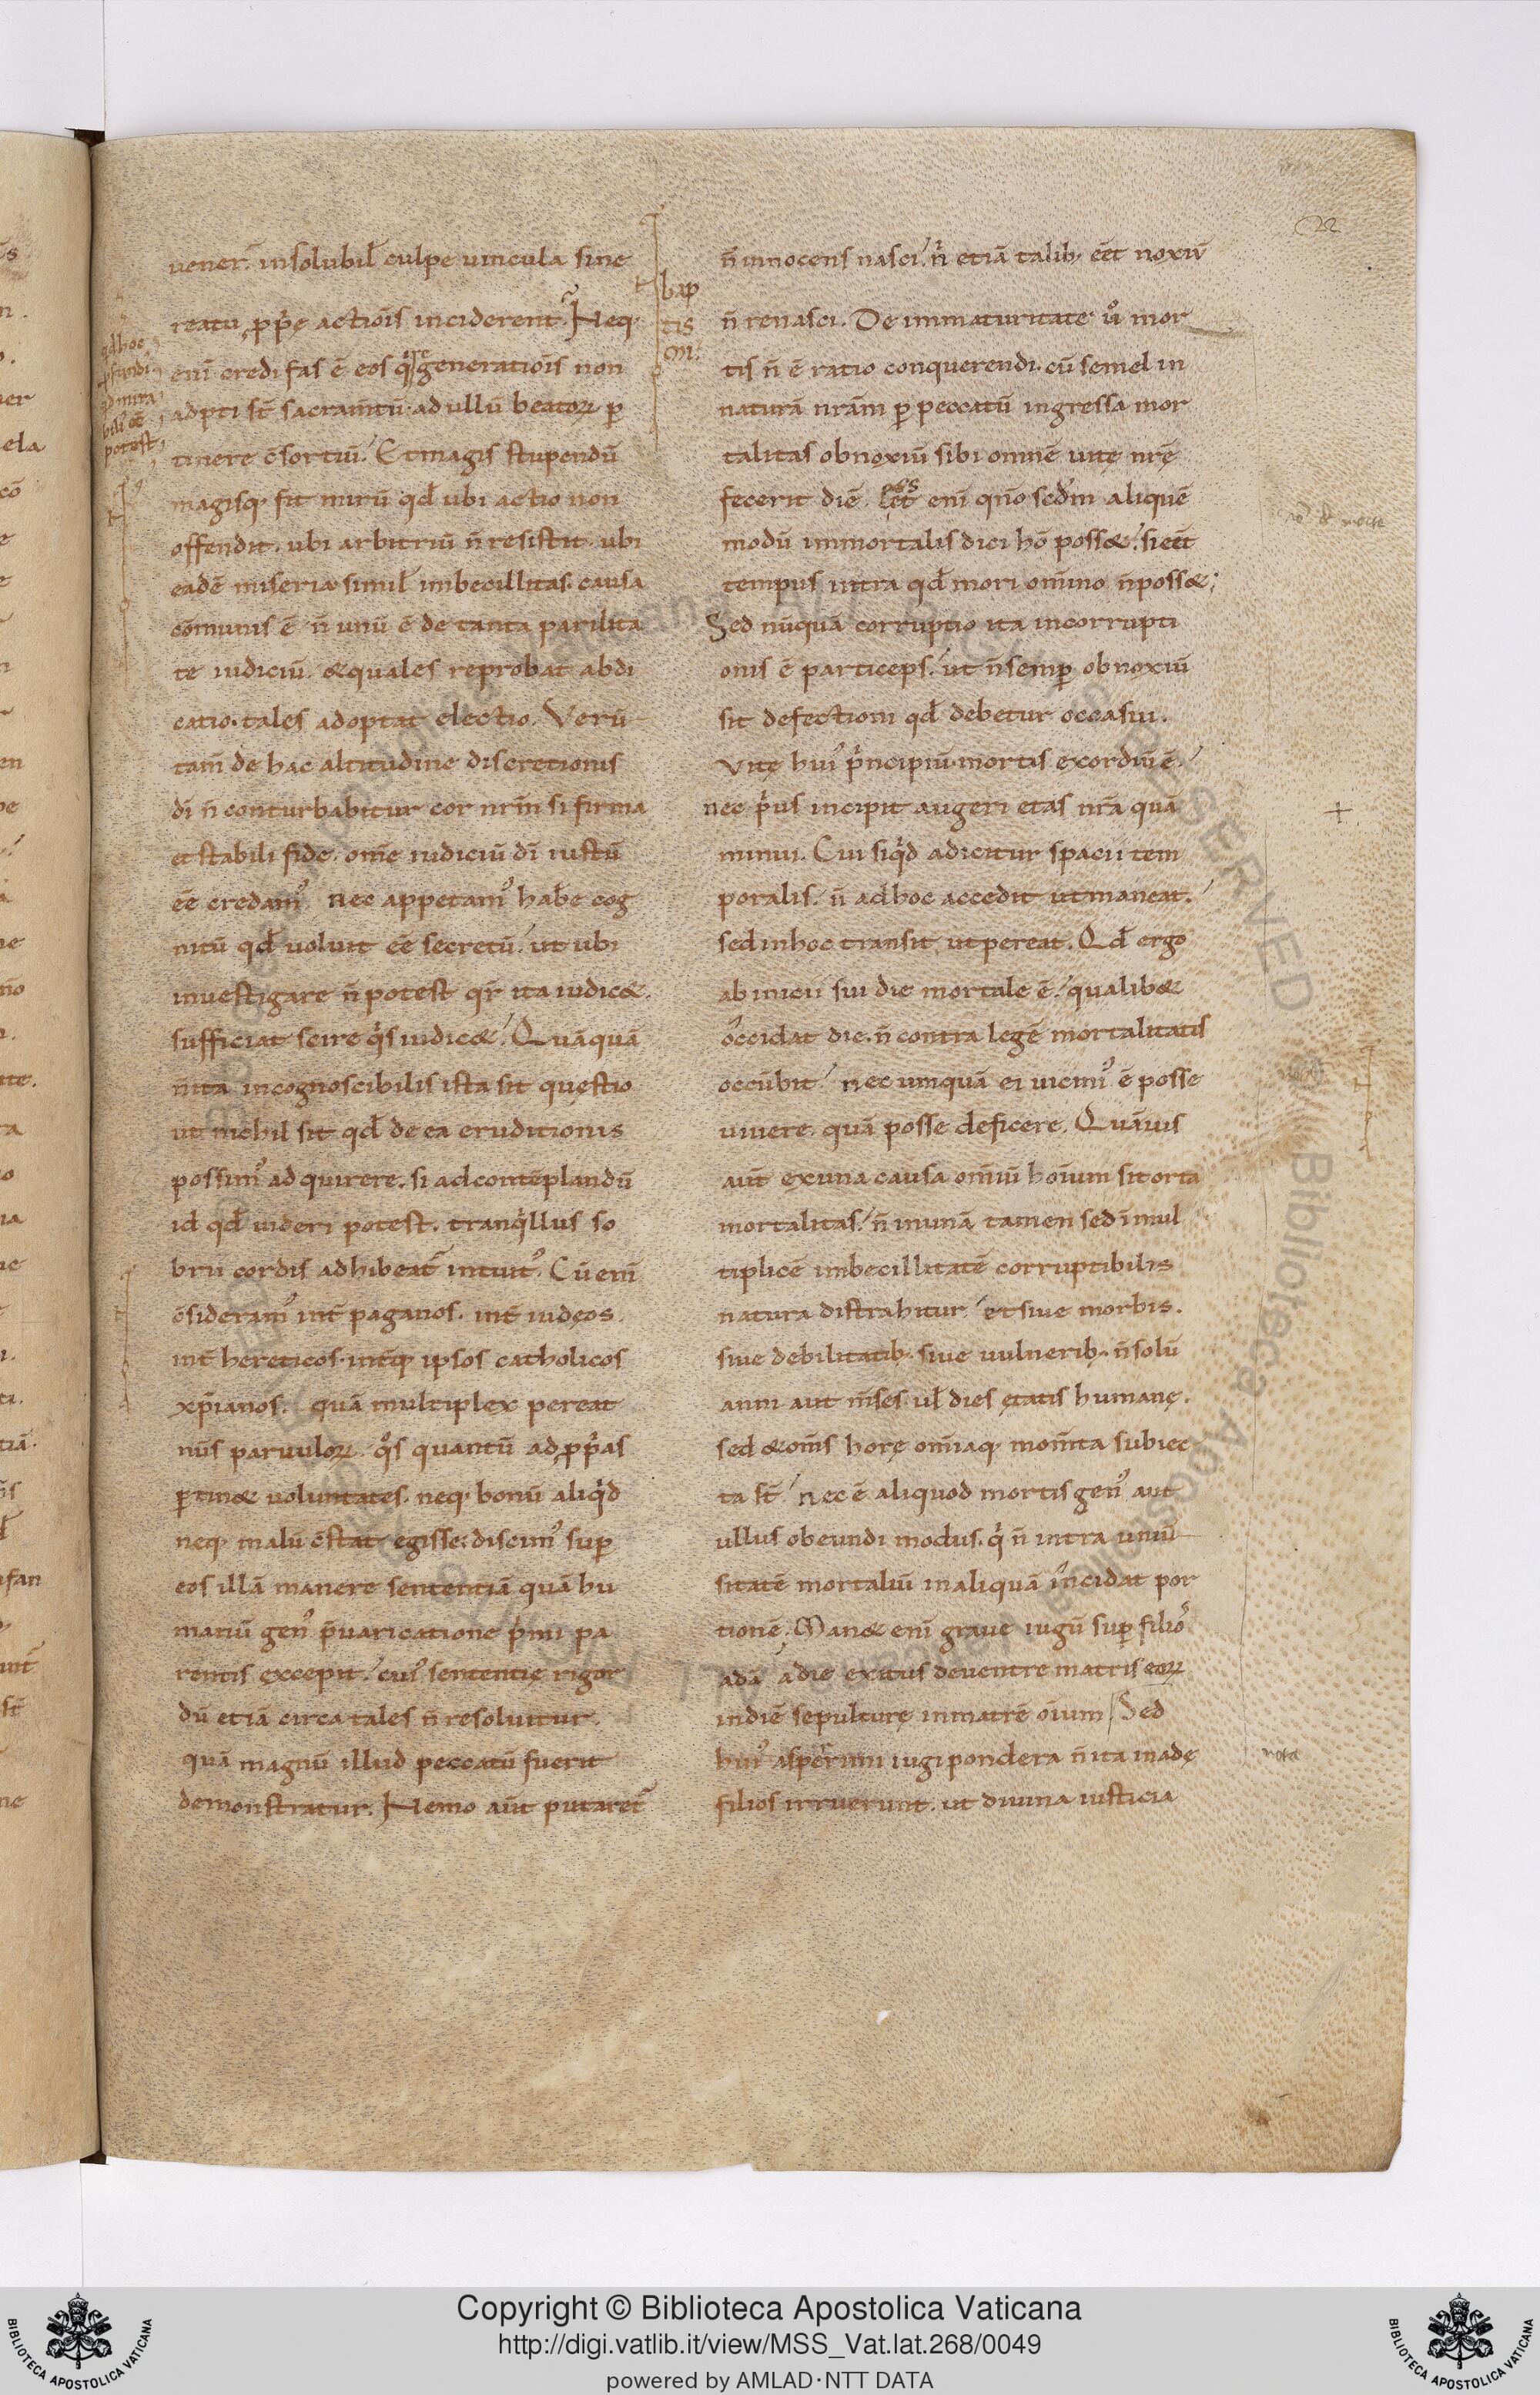 22
uener̄. insolubil̄ culpe uincula sine
reatu ꝓpͥę actiōis inciderent. Neq;
eni credi fas ē eos qͥ regeneratiōis non
adepti st̄ sacram̄tū. ad ullū beatoꝝ ꝑ
tinere c̄sortiū. Et magis stupendū
magisq; fit mirū qd̄ ubi actio non
offendit. ubi arbitriū n̄ resistit. ubi
eadē miseria. simil̄ imbecillitas. causa
cōmunis ē. n̄ unū ē de tanta parilita
te iudiciū. & quales reprobat abdi
catio. tales adoptat electio. Verū
tam̄ de hac altitudine discretionis
dī n̄ conturbabitur cor nrm̄ si firma
et stabili fide. om̄e iudiciū dī iustū
ēē credamꝰ. nec appetamꝰ habe cog
nitū qd̄ voluit ēē secretū. ut ubi
inuestigare n̄ potest qr̄ ita iudic&.
sufficiat scire qͥs iudic&. Quāquā
n̄ ita incognoscibilis ista sit questio
ut nichil sit qd̄ de ea eruditionis
possimꝰ adquirere. si ad contēplandū
id qd̄ uideri potest. tranqͥllus so
brii cordis adhibeat᷑ intuitꝰ. Cū eni
c̄sideramꝰ int̄ paganos. int̄ iudęos.
int̄ hereticos. int̄q; ipsos catholicos
xp̄ianos. quā multiplex pereat
nūs paruuloꝝ. qͦs quantū ad ꝓpͥas
ꝑtin& voluntates. neq; bonū aliqͥd
neq; malū c̄stat egisse: discimꝰ suꝑ
eos illā manere sententiā quā hu
manū genꝰ p̄uaricatione pͥmi pa
rentis excepit. cuiꝰ sententię rigor
dū etiā circa tales n̄ resoluitur.
quā magnū illud peccatū fuerit
demonstratur. Nemo aūt putaret᷑
qd hoc
ꝓfundū
& mira
bile ēē
potest
bap
tis
m̄.
n̄ innocens nasci. n̄ etiā talib; ēēt noxiū
n̄ renasci. De immaturitate ūͦ mor
tis n̄ ē ratio conquerendi. cū semel in
naturā nrām ꝑ peccatū ingressa mor
talitas obnoxiū sibi omnē uitę nrę
fecerit diē. eni qn̄o sed̄m aliquē
modū immortalis dici hō poss&. si ēēt
tempus intra qd̄ mori om̄ino n̄ poss&;
Sed nūquā corruptio ita incorrupti
onis ē particeps. ut n̄ semꝑ obnoxiū
sit defectioni qd̄ debetur occasui.
Vitę huiꝰ pͥncipiū. mortis exordiū ē.
nec pͥus incipit augeri etas nrā quā
minui. Cui siqͥd adicitur spacii tem
poralis. n̄ ad hoc accedit ut maneat.
sed in hoc transit ut pereat. Qd̄ ergo
ab inicii sui die mortale ē. qualib&
occidat die. n̄ contra legē mortalitatis
occūbit. nec umquā ei uicinꝰ ē posse
uiuere. quā posse deficere. Quāuis
aūt ex una causa om̄iū hoīum sit orta
mortalitas. n̄ in unā tamen sed ī mul
tiplicē imbecillitatē corruptibilis
natura distrahitur. et siue morbis.
siue debilitatib;. siue uulnerib;. n̄ solū
anni aut m̄ses. ul̄ dies ętatis humanę.
sed & om̄s horę om̄iaq; mom̄ta subiec
ta st̄. nec ē aliquod mortis genꝰ aut
ullus obeundi modus. qͥ n̄ intra uniū
sitatē mortaliū in aliquā incidat por
tionē. Man& eni graue iugū suꝑ filios
adā a die exitus de uentre matris eoꝝ
in diē sepulturę in matrē oīum. Sed
huiꝰ asperrimi iugi pondera n̄ ita in adę
filios irruerunt. ut diuina iusticia
nota